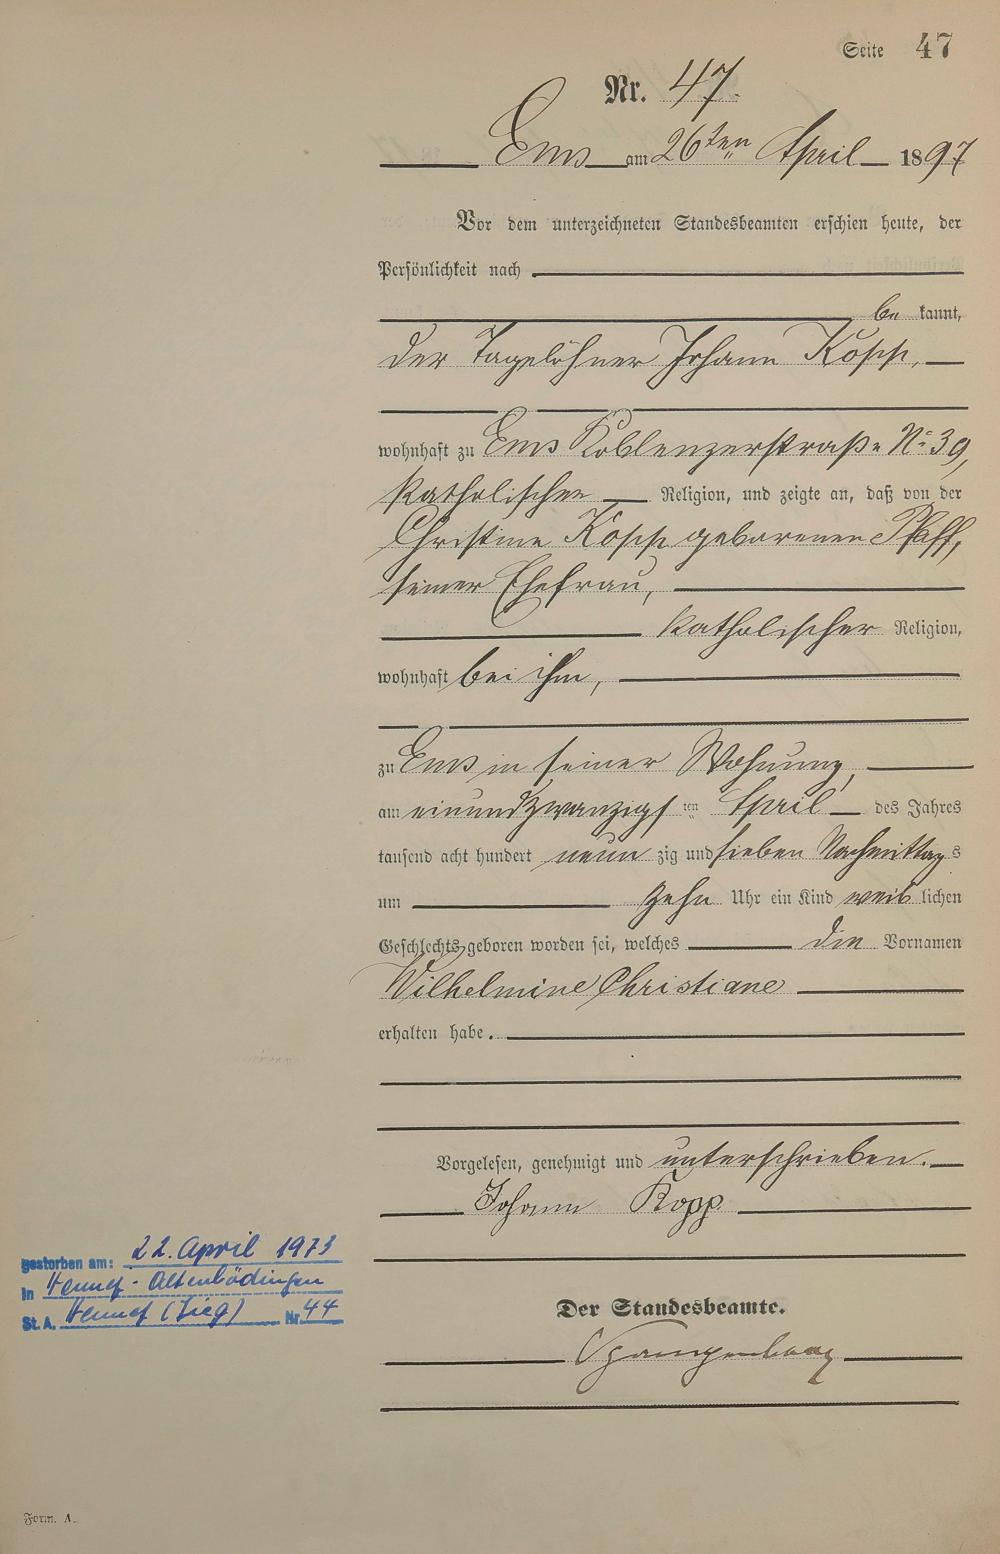 Seite 47
Nr. 47.
Ems am 26ten April 1897
Vor dem unterzeichneten Standesbeamten erschien heute, der
Persönlichkeit nach
be kannt,
der Tagelöhner Johann Kopp,
wohnhaft zu Ems Koblenzerstraße No 39,
katholischer Religion, und zeigte an, daß von der
Christine Kopp geborenen Pfaff,
seiner Ehefrau,
katholischer Religion,
wohnhaft bei ihm,
zu Ems in seiner Wohnung,
am einundzwanzigsten April des Jahres
tausend acht hundert neun zig und sieben Nachmittags
um zehn Uhr ein Kind weib lichen
Geschlechts geboren worden sei, welches die Vornamen
Wilhelmine Christiane
erhalten habe.
Vorgelesen, genehmigt und unterschrieben.
Johann Kopp
gestorben am: 22. April 1973
in Hennef-Altenbödingen
St. A. Hennef (Sieg) Nr. 44
Der Standesbeamte.
Spangenberg
Form. A.